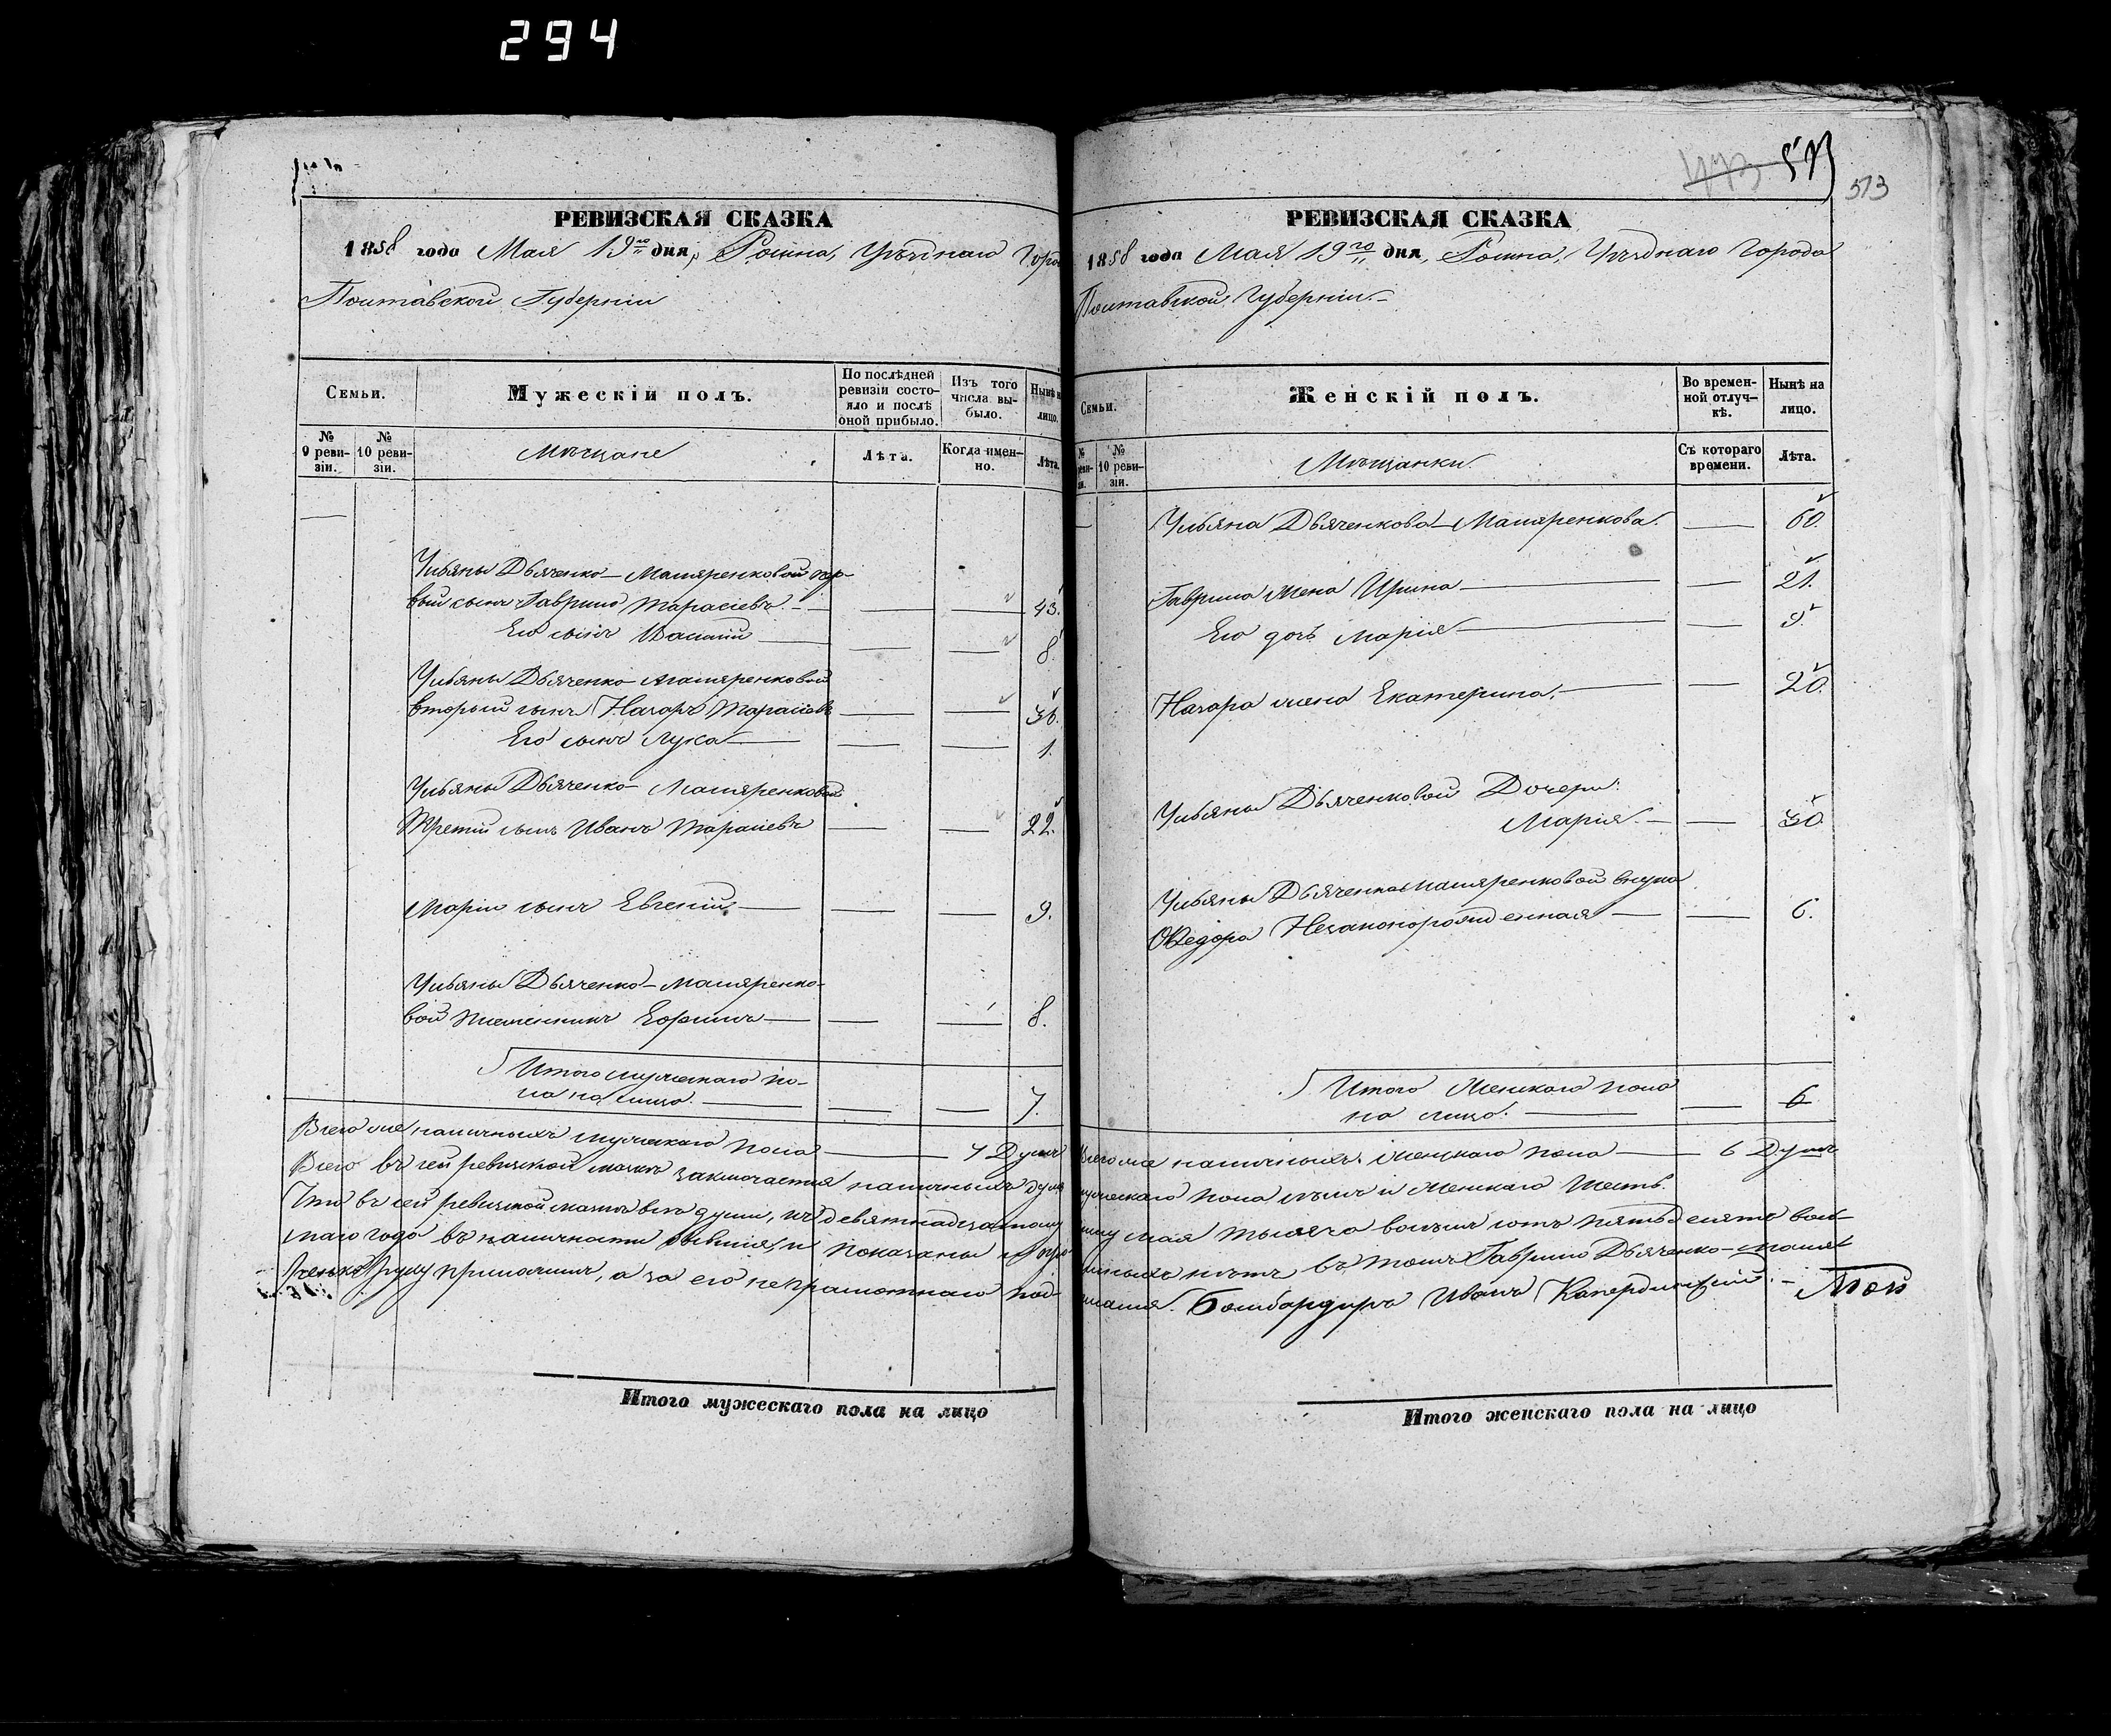 294
РЕВИЗСКАЯ СКАЗКА
1858 года Мая 19го дня, Ромна, Уѣзднаго Горо
Полтавской Губерніи
Семьи.
Мужескій полъ.
По послѣдней ревизіи состояло и послѣ оной прибыло.
Изъ того числа выбыло.
Нынѣ на лицо.
№ 9 ревизіи.
№ 10 ревизіи.
Мѣщане
Лѣта.
Когда именно.
Лѣта.
Ульяны Дьяченко-Маляренковой пер-
вый сынъ Гаврило Тарасіевъ — — 43.
Его сынъ Василій — — 8.
Ульяны Дьяченко Маляренковой
второй сынъ Назаръ Тарасіевъ — — 36.
Его сынъ Лука — — 1.
Ульяны Дьяченко Маляренковой
Третій сынъ Иванъ Тарасіевъ — — 22.
Маріи сынъ Евгеній — — 9.
Ульяны Дьяченко-Маляренко-
вой племенникъ Ефимъ — — 8.
Итого мужескаго по-
ла на лицо. — — 7.
Всего же наличныхъ мужескаго пола — 7 Душъ
Всего въ сей ревизской сказкѣ заключается наличныхъ душъ
Что въ сей ревизской сказкѣ всѣ души, къ девятнадцатому
наго года въ наличности бывшія, и показаны и про
ренко руку приложилъ, а за его неграмотнаго под-
Итого мужескаго пола на лицо
473 513
513
РЕВИЗСКАЯ СКАЗКА
1858 года Мая 19го дня, Ромна, Уѣзднаго Города
Полтавской Губерніи.
Семьи.
Женскій полъ.
Во временной отлучкѣ.
Нынѣ на лицо.
№ 10 ревизіи.
Мѣщанки.
Съ котораго времени.
Лѣта.
Ульяна Дьяченкова-Маляренкова. — 60.
Гаврила жена Ирина — — 21.
Его дочь Марія — — 9.
Назара жена Екатерина. — — 20.
Ульяны Дьяченковой Дочери:
Марія. — — 30.
Ульяны Дьяченко Маляренковой внука
Федора Незаконорожденная — — 6.
Итого Женскаго пола
на лицо. — — 6
Всего же наличныхъ женскаго пола — 6 Душъ
мужескаго пола семь и женскаго Шесть.
му мая тысяча восемь сотъ пятьдесятъ вось-
ныхъ нѣтъ въ томъ Гаврило Дьяченко-Маля
писался. Бомбардиръ Иванъ
Итого женскаго пола на лицо